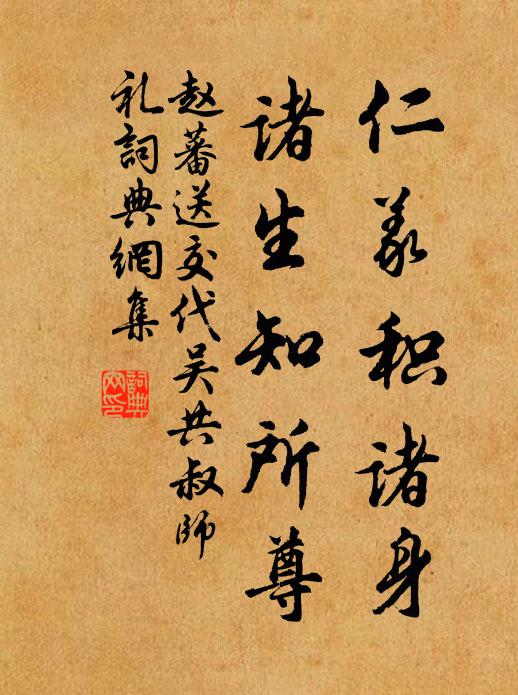 仁义积诸身
诸生知所尊
赵蕃送交代吴共叔师
礼词典网集
词典网印